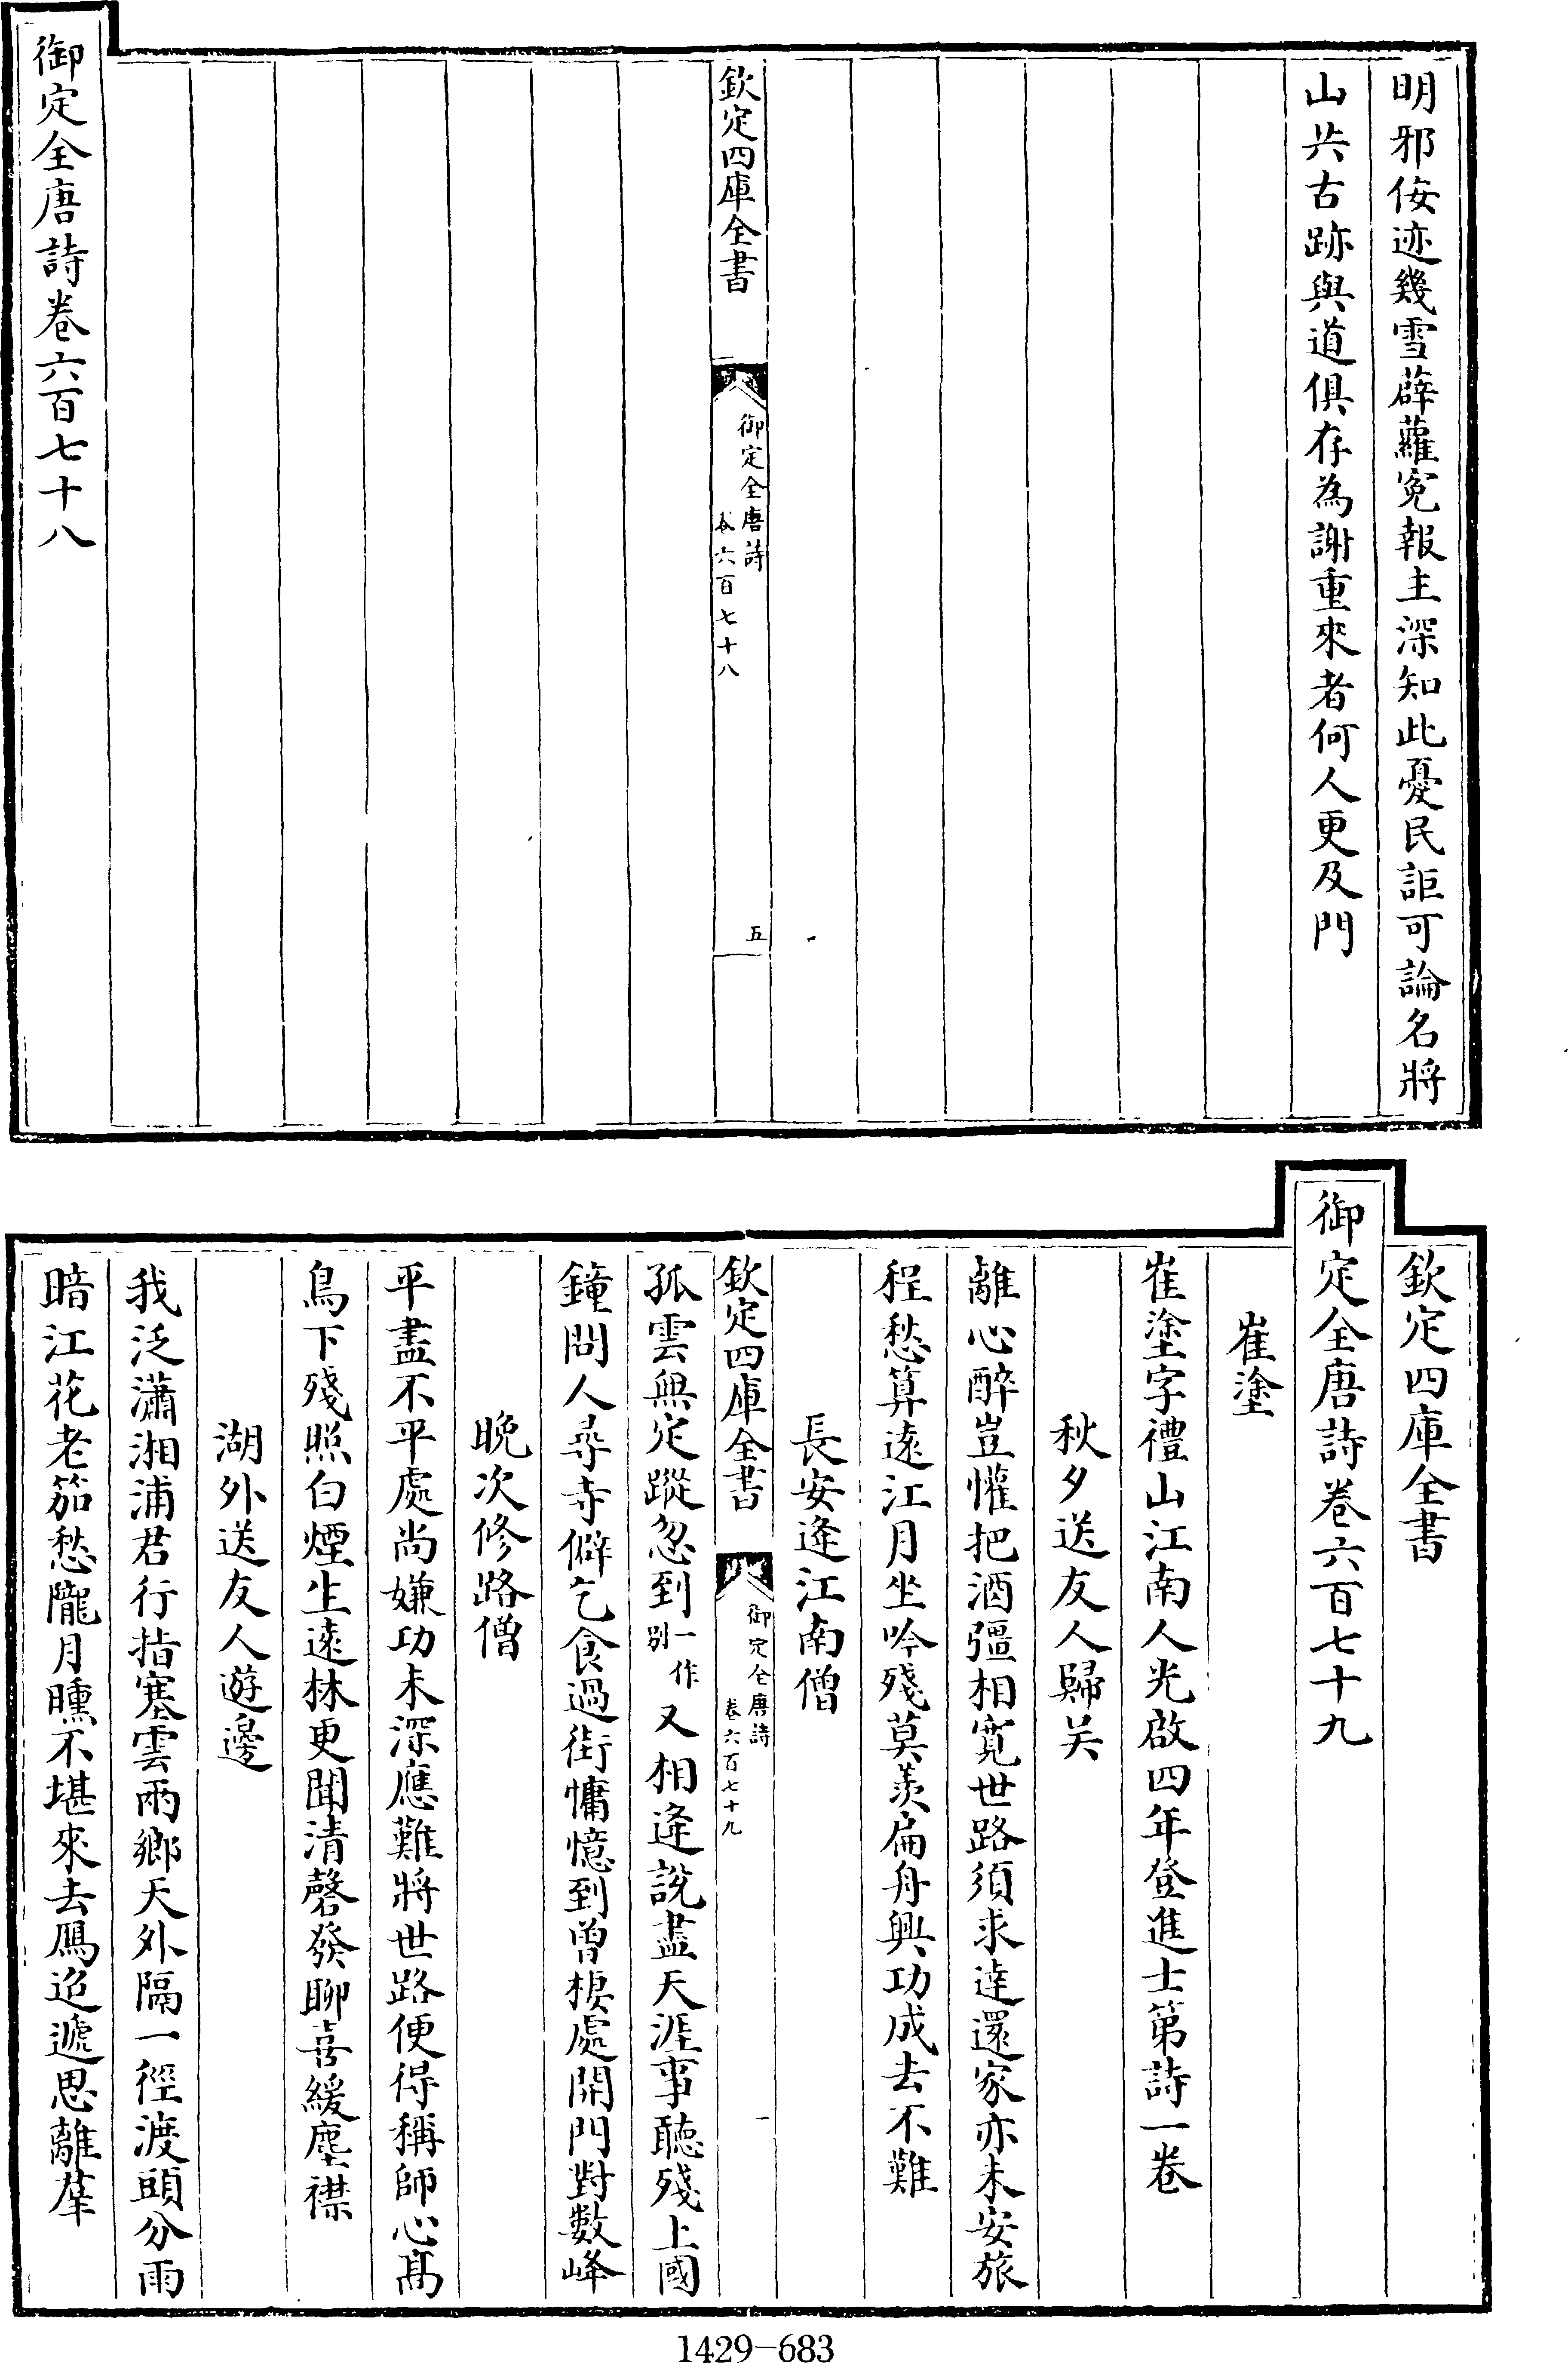 明邪佞迹幾雪薜蘿寃報主深知此憂民詎可論名將
山共古跡與道俱存為謝重來者何人更及門
欽定四庫全書
御定全唐詩
卷六百七十八
五
御定全唐詩卷六百七十八
欽定四庫全書
御定全唐詩卷六百七十九
崔塗
崔塗字禮山江南人光啟四年登進士第詩一卷
秋夕送友人歸吳
離心醉豈懽把酒彊相寛世路須求達還家亦未安旅
程愁算遠江月坐吟殘莫羨扁舟興功成去不難
長安逢江南僧
欽定四庫全書
御定全唐詩
卷六百七十九
一
孤雲無定蹤忽到一作別又相逢說盡天涯事聽殘上國
鐘問人尋寺僻乞食過街慵憶到曾棲處開門對數峰
晚次修路僧
平盡不平處尚嫌功未深應難將世路便得稱師心髙
鳥下殘照白煙生遠林更聞清磬發聊喜緩塵襟
湖外送友人遊邊
我泛瀟湘浦君行指塞雲兩鄉天外隔一徑渡頭分雨
暗江花老笳愁隴月曛不堪來去鴈迢遞思離羣
1429-683